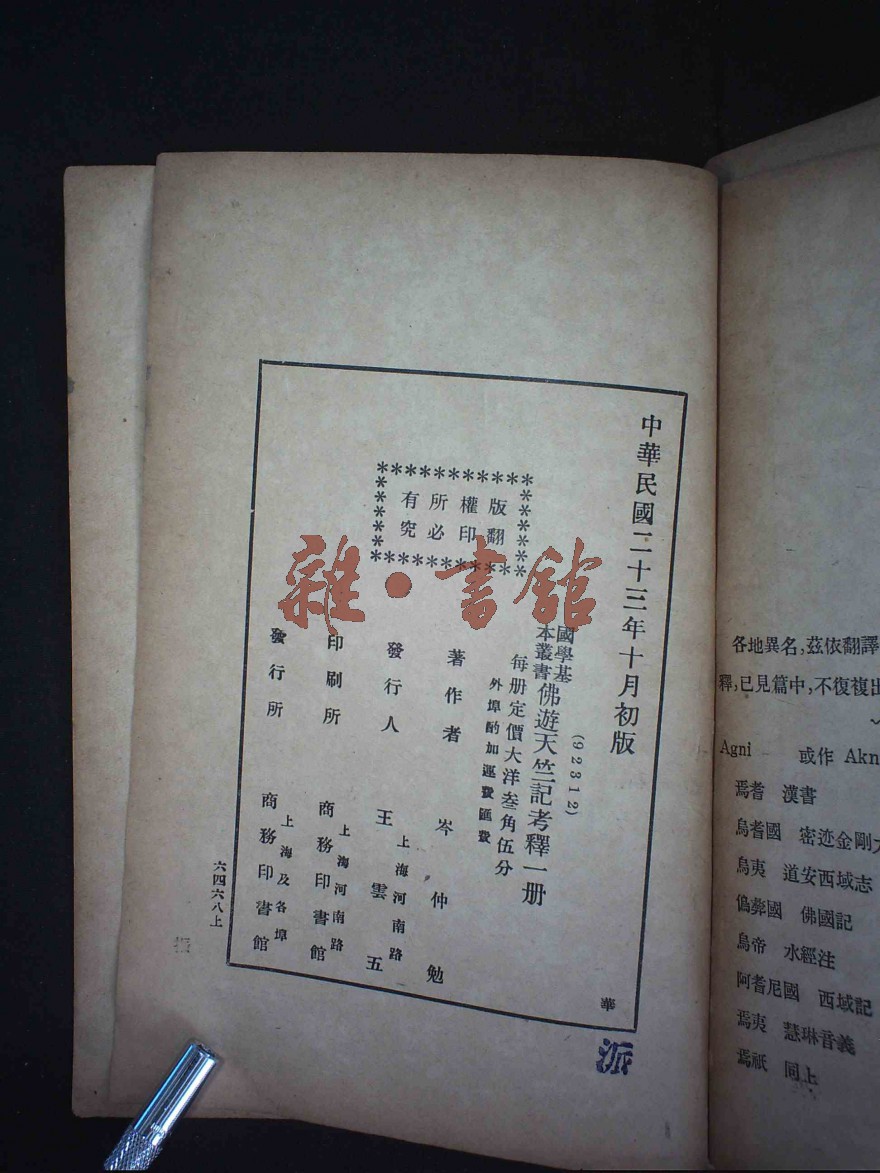 中華民國二十三年十月初版
(92312)
國學基
本叢書
佛遊天竺記考釋一册
每册定價大洋叁角伍分
外埠酌加運費匯費
版權所有
翻印必究
著作者 岑仲勉
發行人 王雲五
上海河南路
印刷所 商務印書館
上海河南路
發行所 商務印書館
上海及各埠
華
派
六四六八上
雜·書館
各地異名,茲依翻譯
釋,已見篇中,不復複出
Agni 或作 Akn
焉耆 漢書
烏耆國 密迹金剛
烏夷 道安西域志
僞彝國 佛國記
烏帝 水經注
阿耆尼國 西域記
焉夷 慧琳音義
焉祇 同上